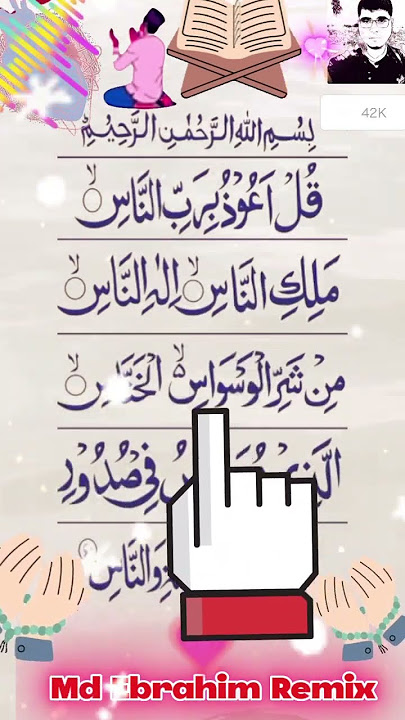 42K
بِسْمِ اللهِ الرَّحْمٰنِ الرَّحِيْمِ
قُلْ اَعُوْذُ بِرَبِّ النَّاسِ ۙ
مَلِكِ النَّاسِ ۙ اِلٰهِ النَّاسِ ۙ
مِنْ شَرِّ الْوَسْوَاسِ ۙ الْخَنَّاسِ ۙ
فِیْ صُدُوْرِ
وَالنَّاسِ
Md Ebrahim Remix